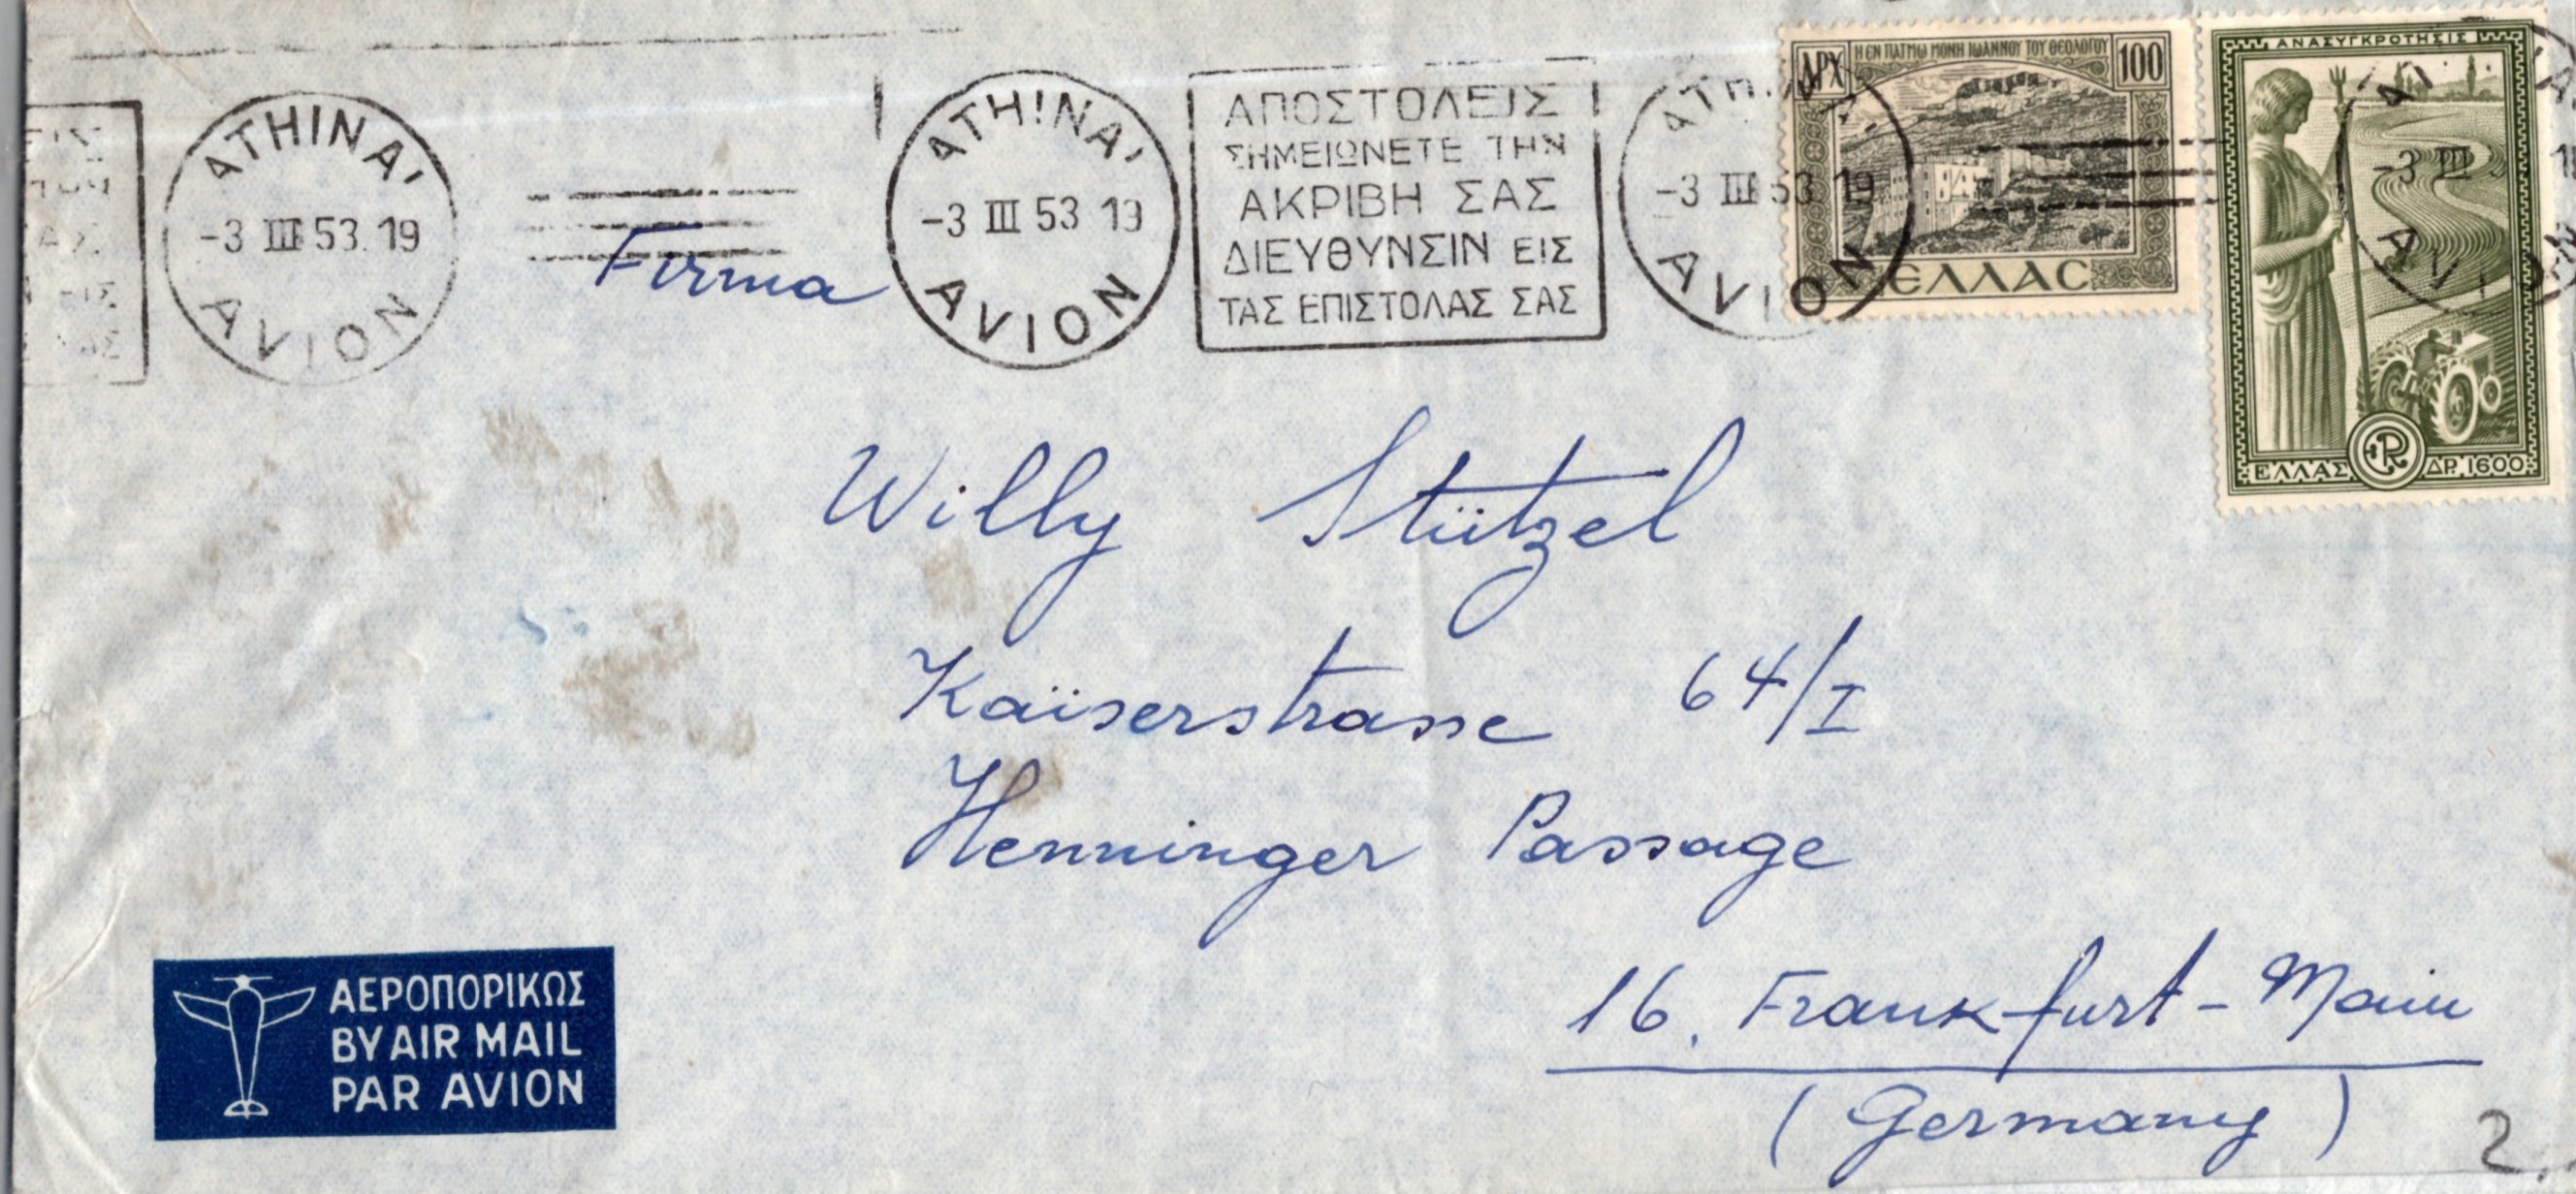 ATHINAI
-3 III 53. 19
AVION
ATHINAI
-3 III 53 19
AVION
ΑΠΟΣΤΟΛΕΙΣ
ΣΗΜΕΙΩΝΕΤΕ ΤΗΝ
ΑΚΡΙΒΗ ΣΑΣ
ΔΙΕΥΘΥΝΣΙΝ ΕΙΣ
ΤΑΣ ΕΠΙΣΤΟΛΑΣ ΣΑΣ
-3 III 53 19
AVION
ΔΡΧ Η ΕΝ ΠΑΤΜΩ ΜΟΝΗ ΙΩΑΝΝΟΥ ΤΟΥ ΘΕΟΛΟΓΟΥ 100
ΕΛΛΑC
ΑΝΑΣΥΓΚΡΟΤΗΣΙΣ
-3 III
AVIO
ΕΛΛΑΣ ΔΡ. 1600
Firma
Willy Stützel
Kaïserstrasse 64/I
Henninger Passage
16. Frankfurt-Main
(Germany)
ΑΕΡΟΠΟΡΙΚΩΣ
BY AIR MAIL
PAR AVION
2.